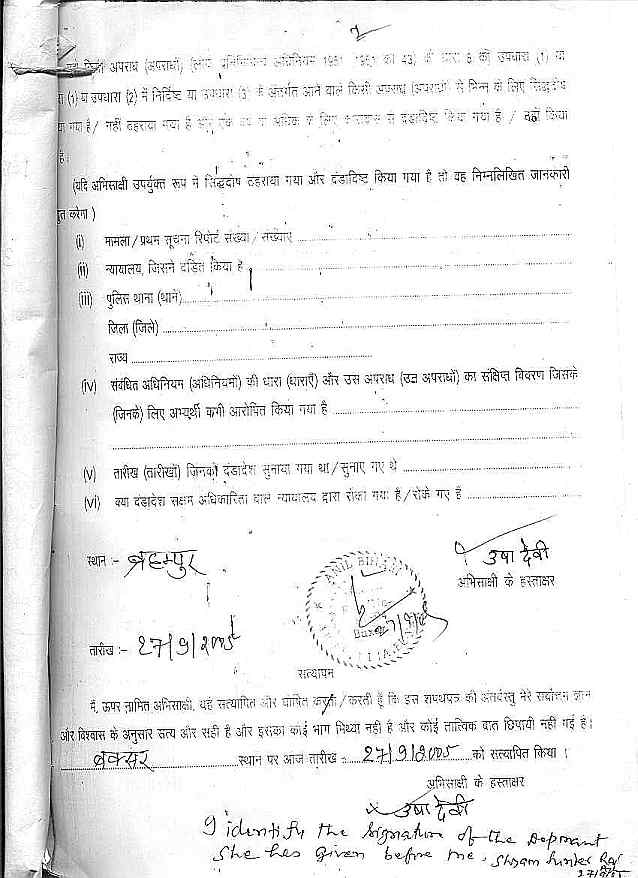 2
किसी अपराध (अपराधों) (लोक प्रतिनिधित्व अधिनियम 1951 1951 का 43) की धारा 8 की उपधारा (1) या
(1) या उपधारा (2) में निर्दिष्ट या उपधारा (3) के अंतर्गत आने वाले किसी अपराध (अपराधों) से भिन्न के लिए सिद्धदोष
गया है / नहीं ठहराया गया है और एक वर्ष या अधिक के लिए कारावास से दंडादिष्ट किया गया है / नहीं किया
है।
(यदि अभिसाक्षी उपर्युक्त रूप में सिद्धदोष ठहराया गया और दंडादिष्ट किया गया है तो वह निम्नलिखित जानकारी
करेगा)
(i) मामला / प्रथम सूचना रिपोर्ट संख्या / संख्याएं
(ii) न्यायालय, जिसने दंडित किया है
(iii) पुलिस थाना (थाने)
जिला (जिले)
राज्य
(iv) संबंधित अधिनियम (अधिनियमों) की धारा (धाराएँ) और उस अपराध (उन अपराधों) का संक्षिप्त विवरण जिसके
(जिनके) लिए अभ्यर्थी आरोपित किया गया है
(v) तारीख (तारीखों) जिनको दंडादेश सुनाया गया था / सुनाए गए थे
(vi) क्या दंडादेश सक्षम अधिकारिता वाले न्यायालय द्वारा रोका गया है / रोके गए हैं
स्थान :- ब्रहमपुर
उषा देवी
अभिसाक्षी के हस्ताक्षर
ANIL BIHARI
27/9/05
तारीख :- 27/9/2005
सत्यापन
मैं, ऊपर नामित अभिसाक्षी, यह सत्यापित और घोषित करता / करती हूँ कि इस शपथपत्र की अंतर्वस्तु मेरे सर्वोत्तम ज्ञान
और विश्वास के अनुसार सत्य और सही है और इसका कोई भाग मिथ्या नहीं है और कोई तात्विक बात छिपायी नहीं गई है।
बक्सर स्थान पर आज तारीख :- 27/9/2005 को सत्यापित किया।
अभिसाक्षी के हस्ताक्षर
उषा देवी
I identify the signature of the Deponant
She has given before me. Shyam Sunder
27/9/05